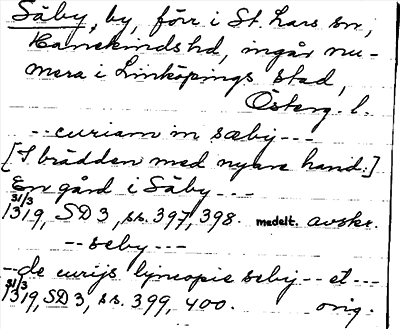 Säby, by, förr i St. Lars sn,
Hanekinds hd, ingår nu-
mera i Linköpings stad,
Österg. l.
-- curiam in sæby ---
[I brädden med nyare hand:]
En gård i Säby ---
31/3 1319, SD 3, ss. 397, 398. medelt. avskr.
-- seby ---
-- de curijs lyncopie seby -- et ---
31/3 1319, SD 3, ss. 399, 400. orig.